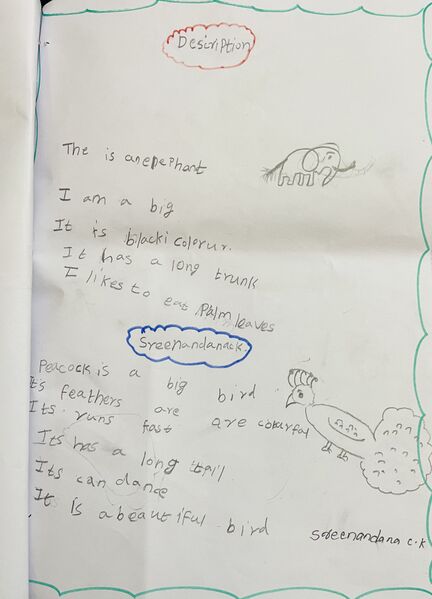 Desiription
The is anepephant
I am a big
It is bilacki colorur.
It has a long trunk
I likes to eat Palm leaves
Sreenandanack.
Peacock is a big bird
Its feathers are are colourfal
Its runs fast
Its has a long tail
Its can dance
It is a beautiful bird
Sreenandana c.k